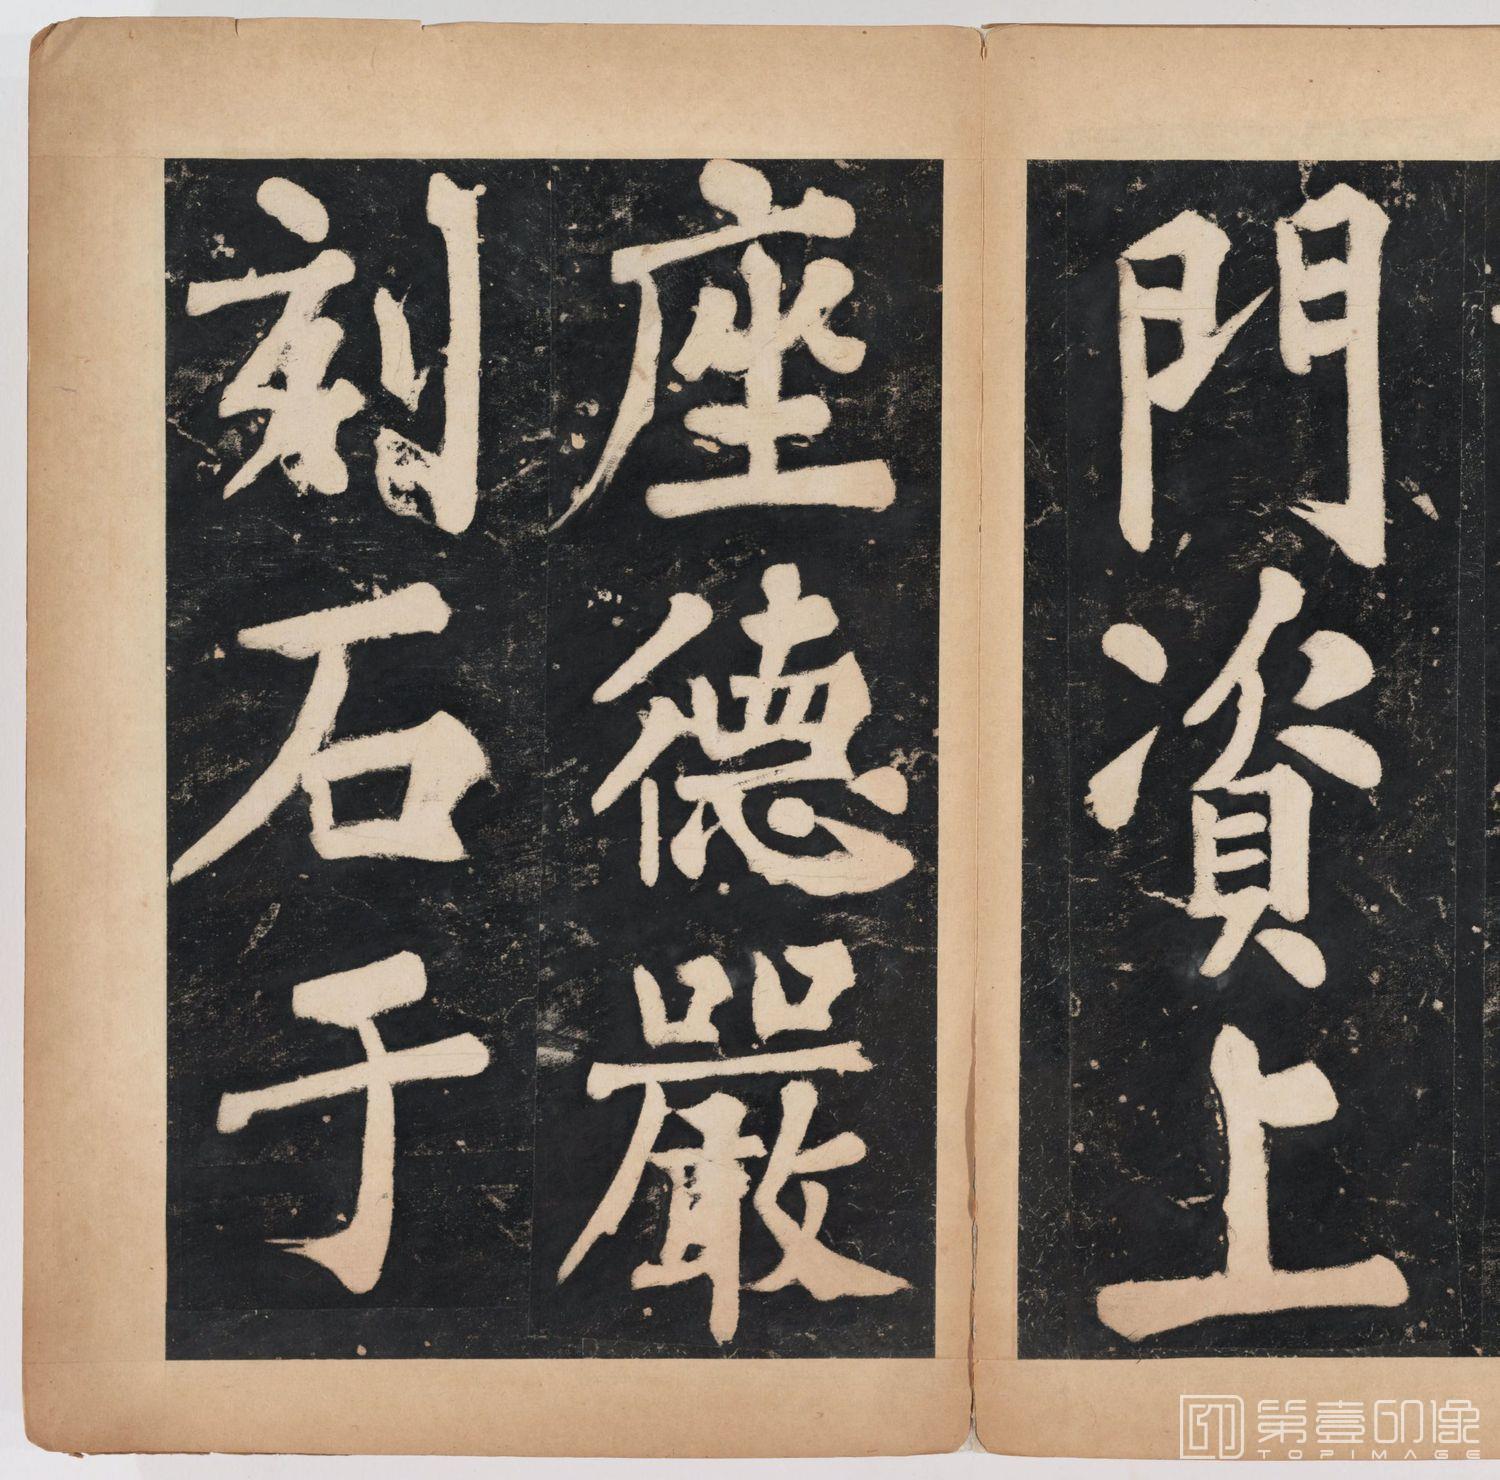 門資上
座德嚴
刻石于
第壹印像
TOPIMAGE